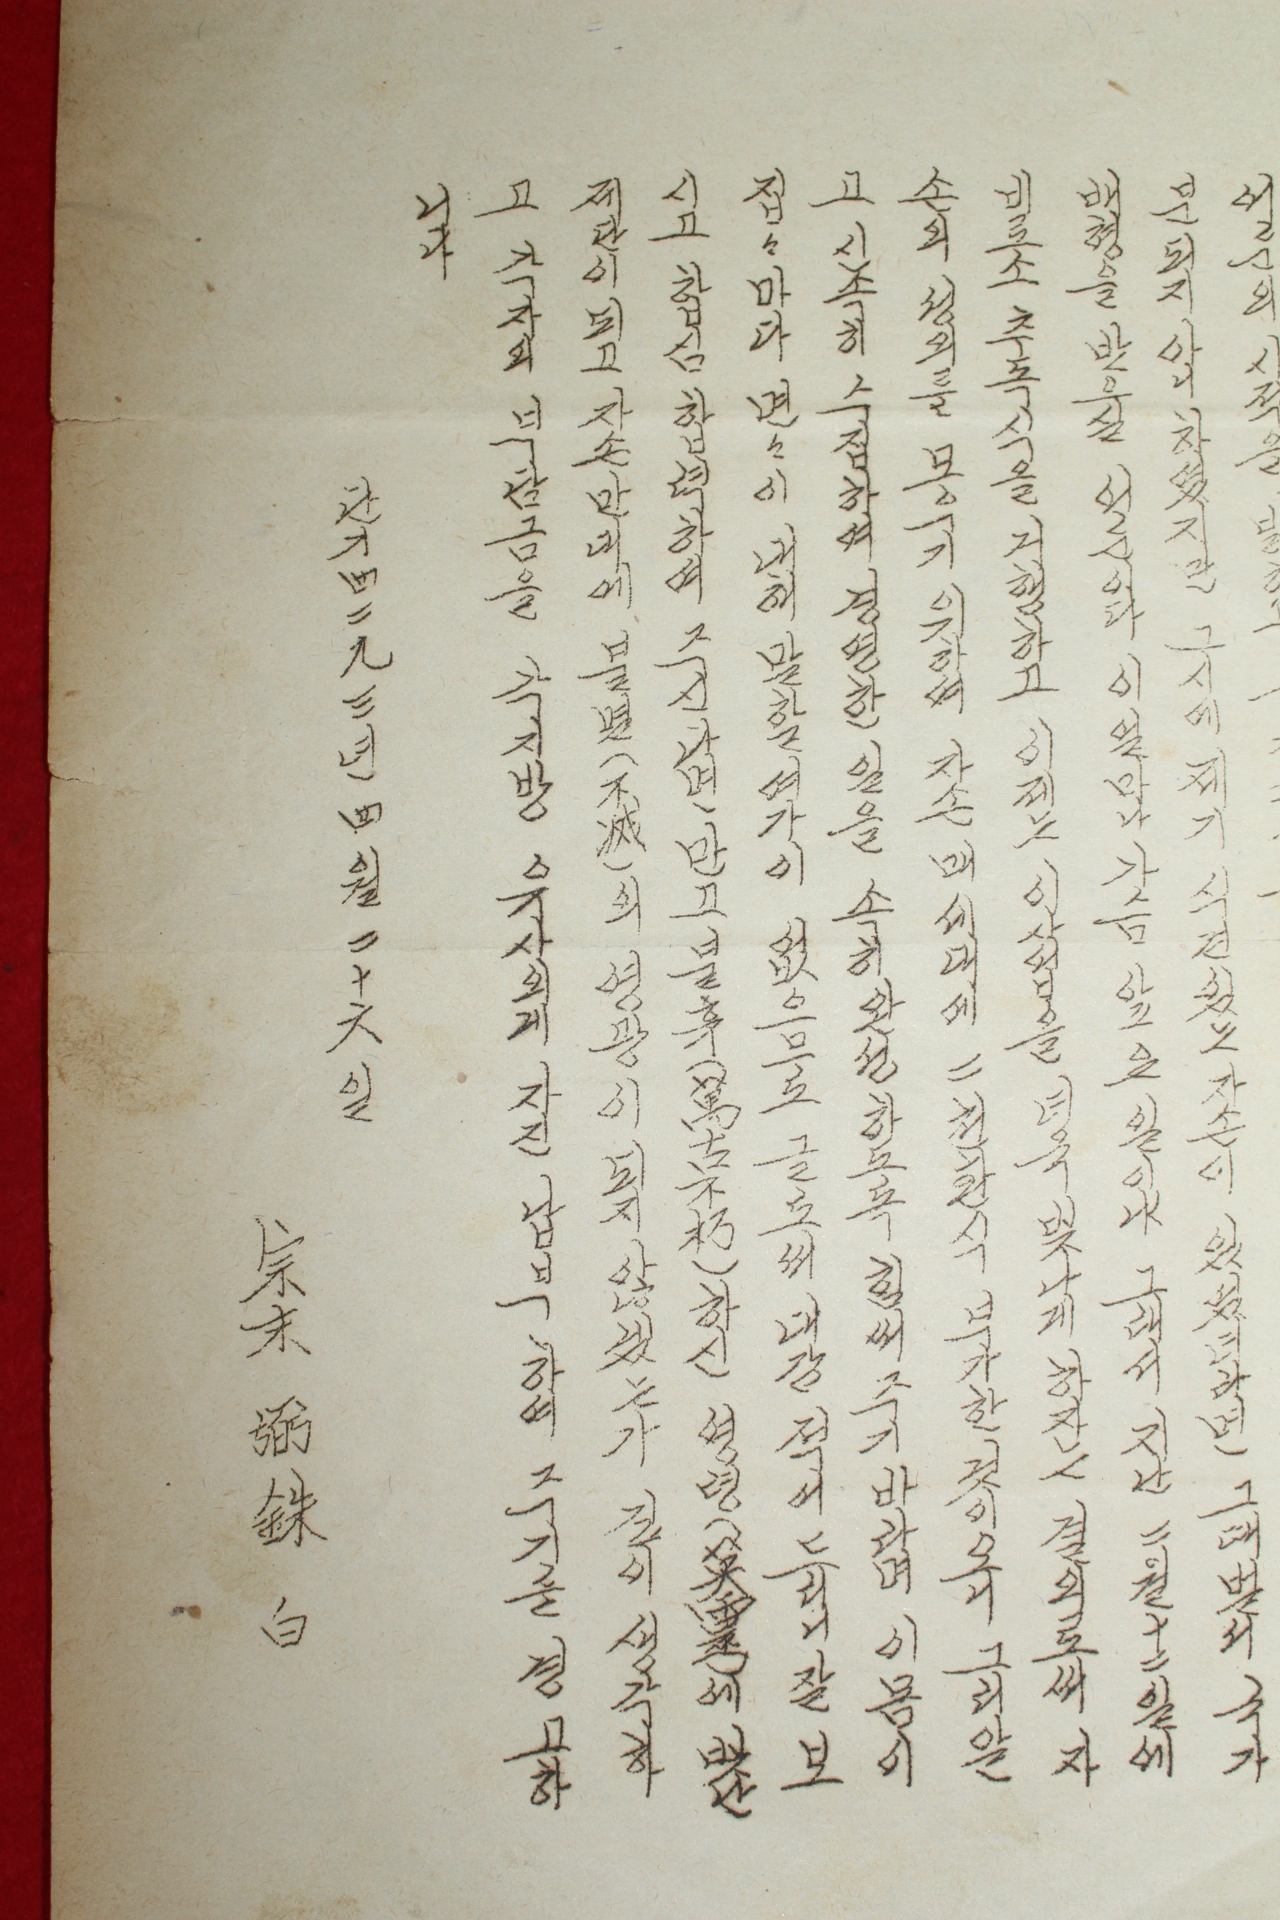 선조의 사적을
분되지 아니하였지만 그시에 제기 식견있는 자손이 있었드라면 그때 벌서 국가
배형을 받으실 선조이다 이 얼마나 가슴 앞으 일이냐 그래서 지난 二월十二일에
비로소 추독식을 거행하고 이제는 이사업을 더욱 빛나게 하자는 결의로써 자
손의 성의를 뭉수기 위하여 자손 매 세대에 二천환식 부가한 것이오니 그리 알
고 신속히 수집하여 경영한 일을 속히 완성하도록 힘써 주기 바라며 이몸이
집々마다 면々이 대해 말할 여가이 없으므로 글로써 대강 적어 드리니 잘 보
시고 합심 합력하여 주신다면 만고불후(萬古不朽)하신 영령(英靈)에 반산
제단이 되고 자손만대에 불멸(不滅)의 영광이 되지 않겠는가 깊이 생각하
고 각자의 부담금을 각지방 유사의게 자진 납부하여 주기를 경고하
니다
단기四二九三년 四월 二十六일
宗末 弼銖 白